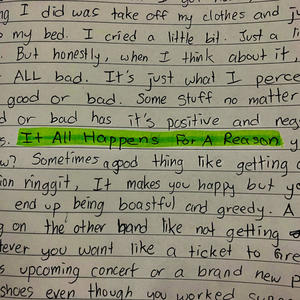 I did was take off my clothes and
my bed. I cried a little bit. Just a
But honestly, when I think about it,
ALL bad. It's just what I
good or bad. Some stuff no matter
or bad has it's positive and
It All Happens For A Reason
Sometimes a good thing like getting
ringgit, It makes you happy but
end up being boastful and greedy. A
on the other hand like not getting
you want like a ticket to
upcoming concert or a brand new
shoes even though you worked